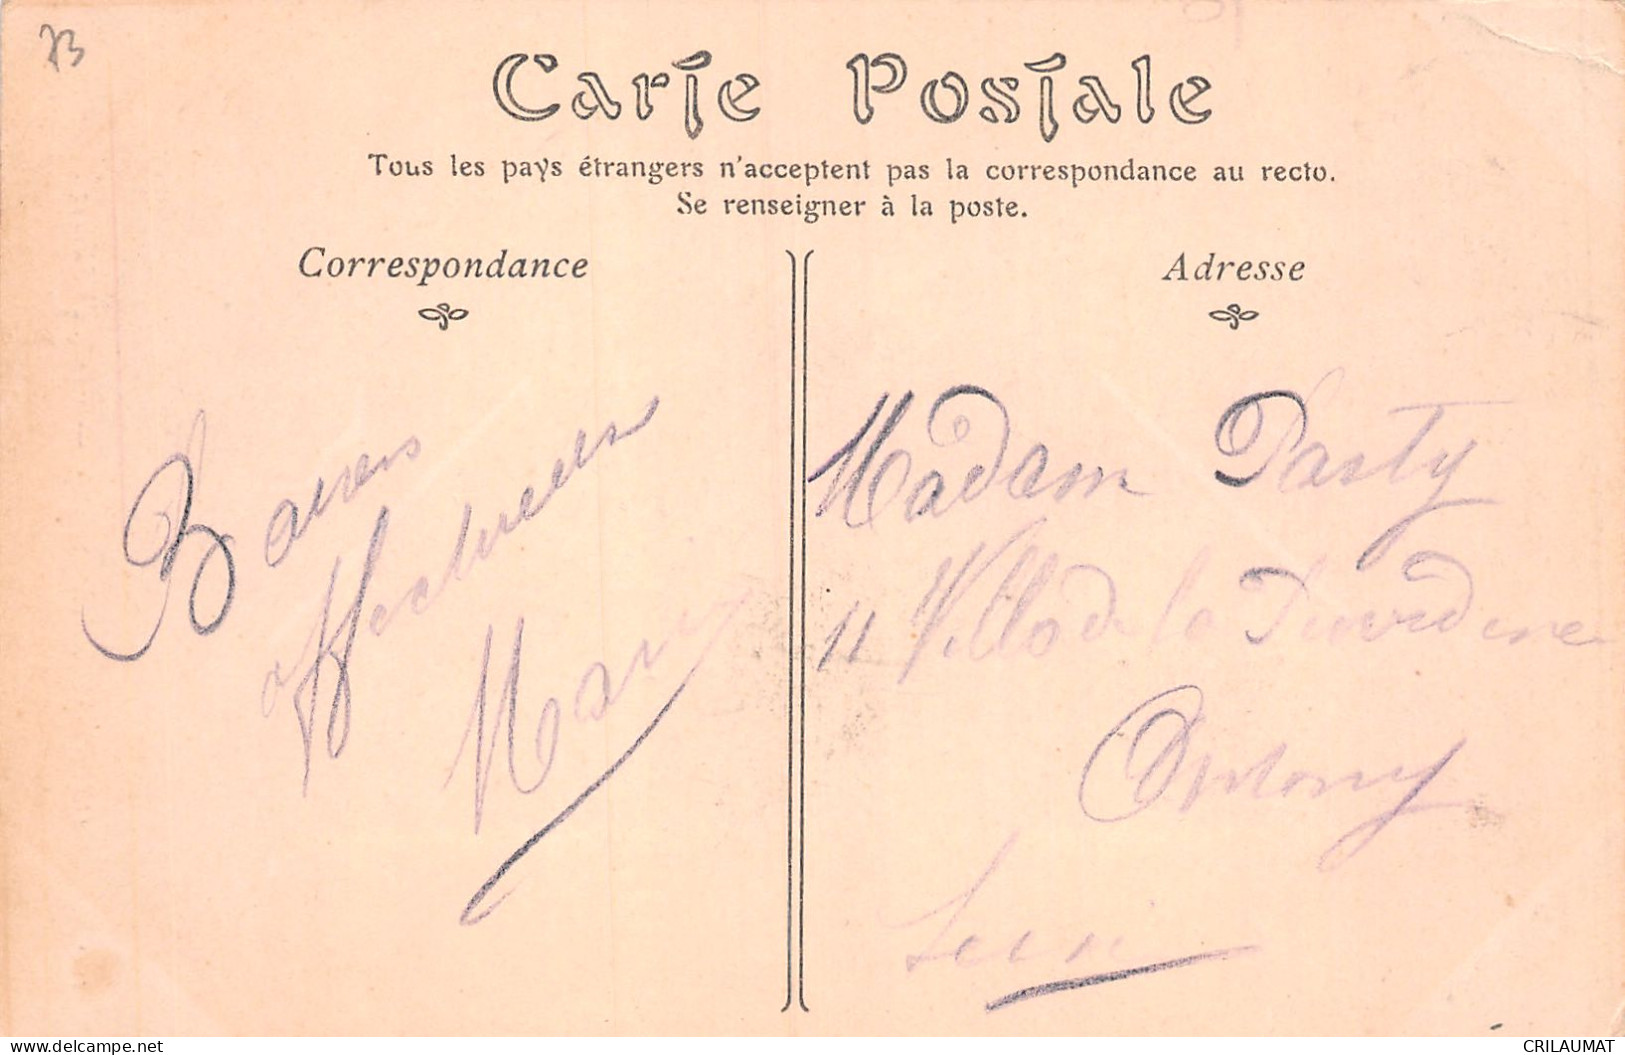 73
Carte Postale
Tous les pays étrangers n'acceptent pas la correspondance au recto.
Se renseigner à la poste.
Correspondance
Adresse
Baisers
affectueux
Mary
Madam Pasty
11 Villa de la
Antony
Seine
CRILAUMAT